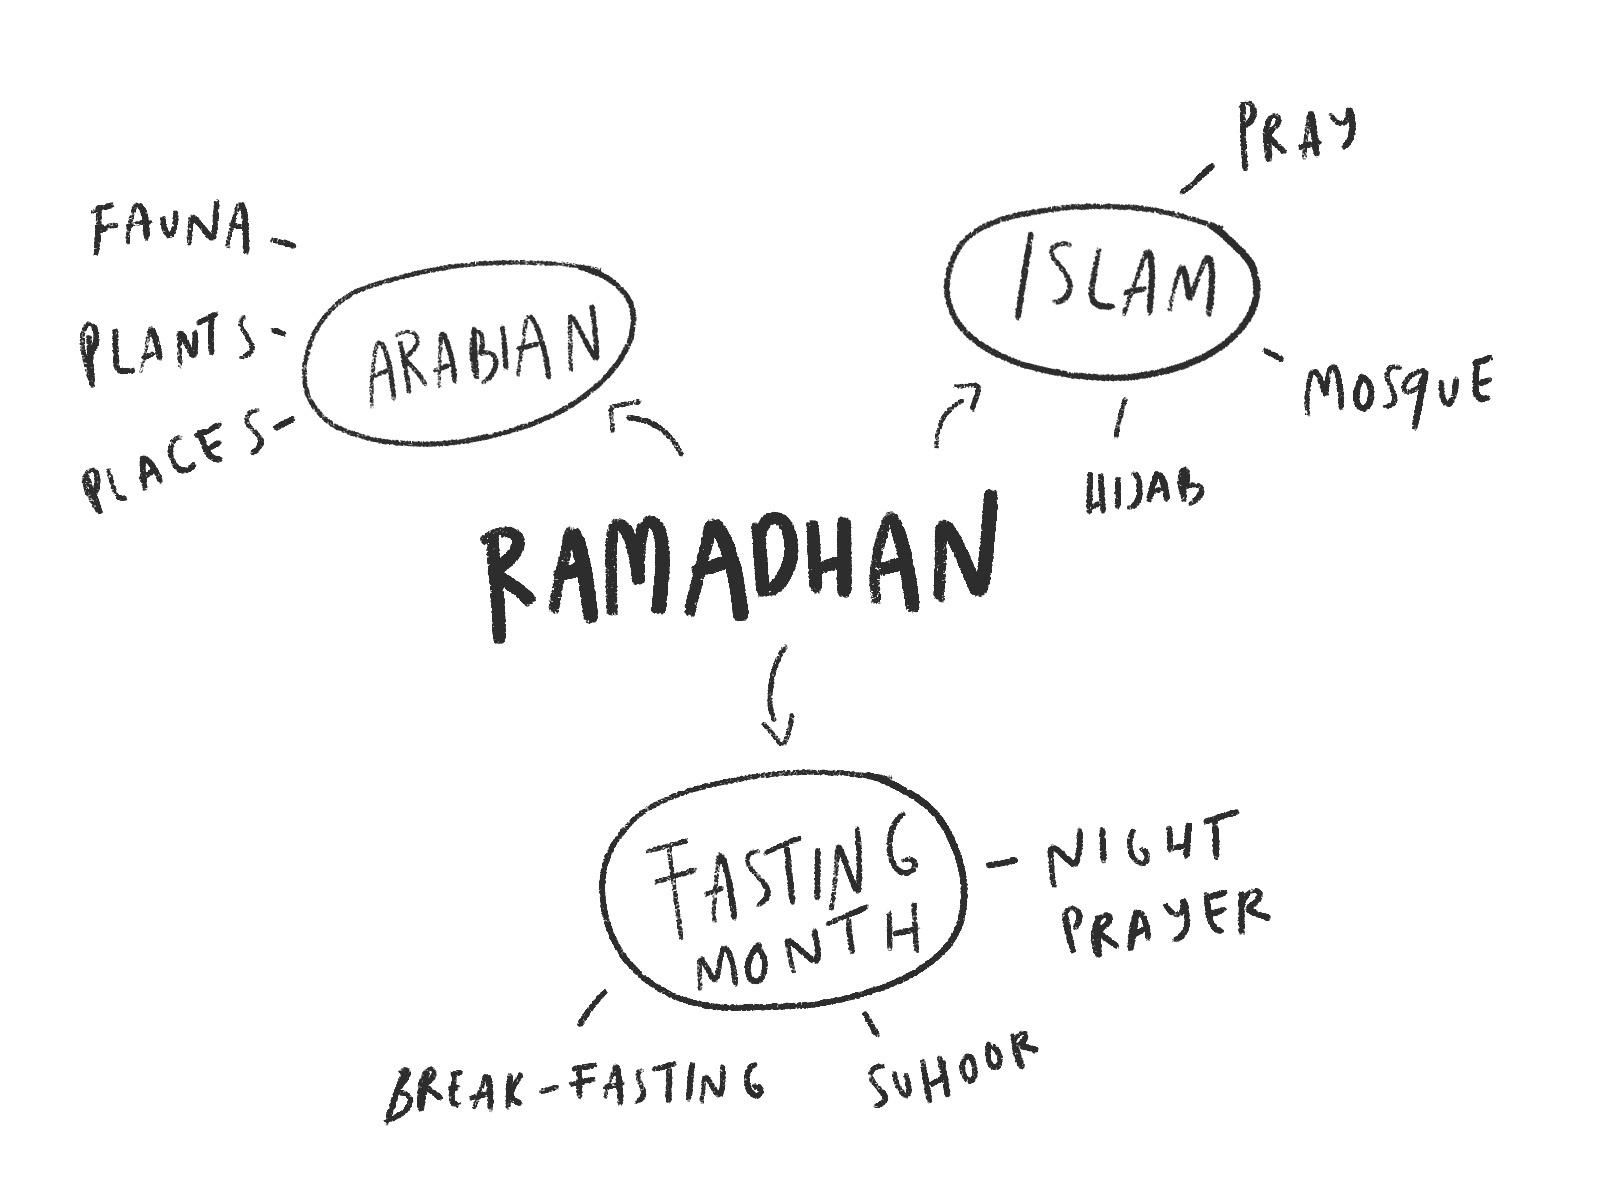 PRAY
FAUNA
ISLAM
PLANTS
ARABIAN
MOSQUE
PLACES
HIJAB
RAMADHAN
FASTING
MONTH
NIGHT
PRAYER
BREAK-FASTING
SUHOOR